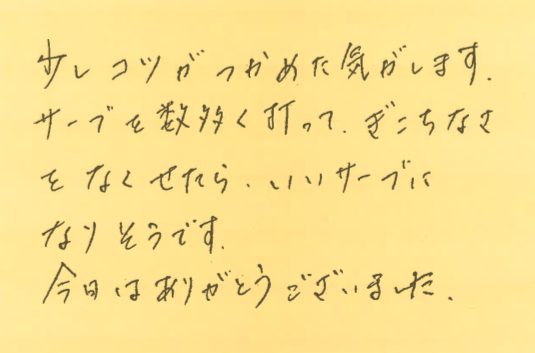 少しコツがつかめた気がします.
サーブを数多く打って、ぎこちなさ
をなくせたら、いいサーブに
なりそうです.
今日はありがとうございました.